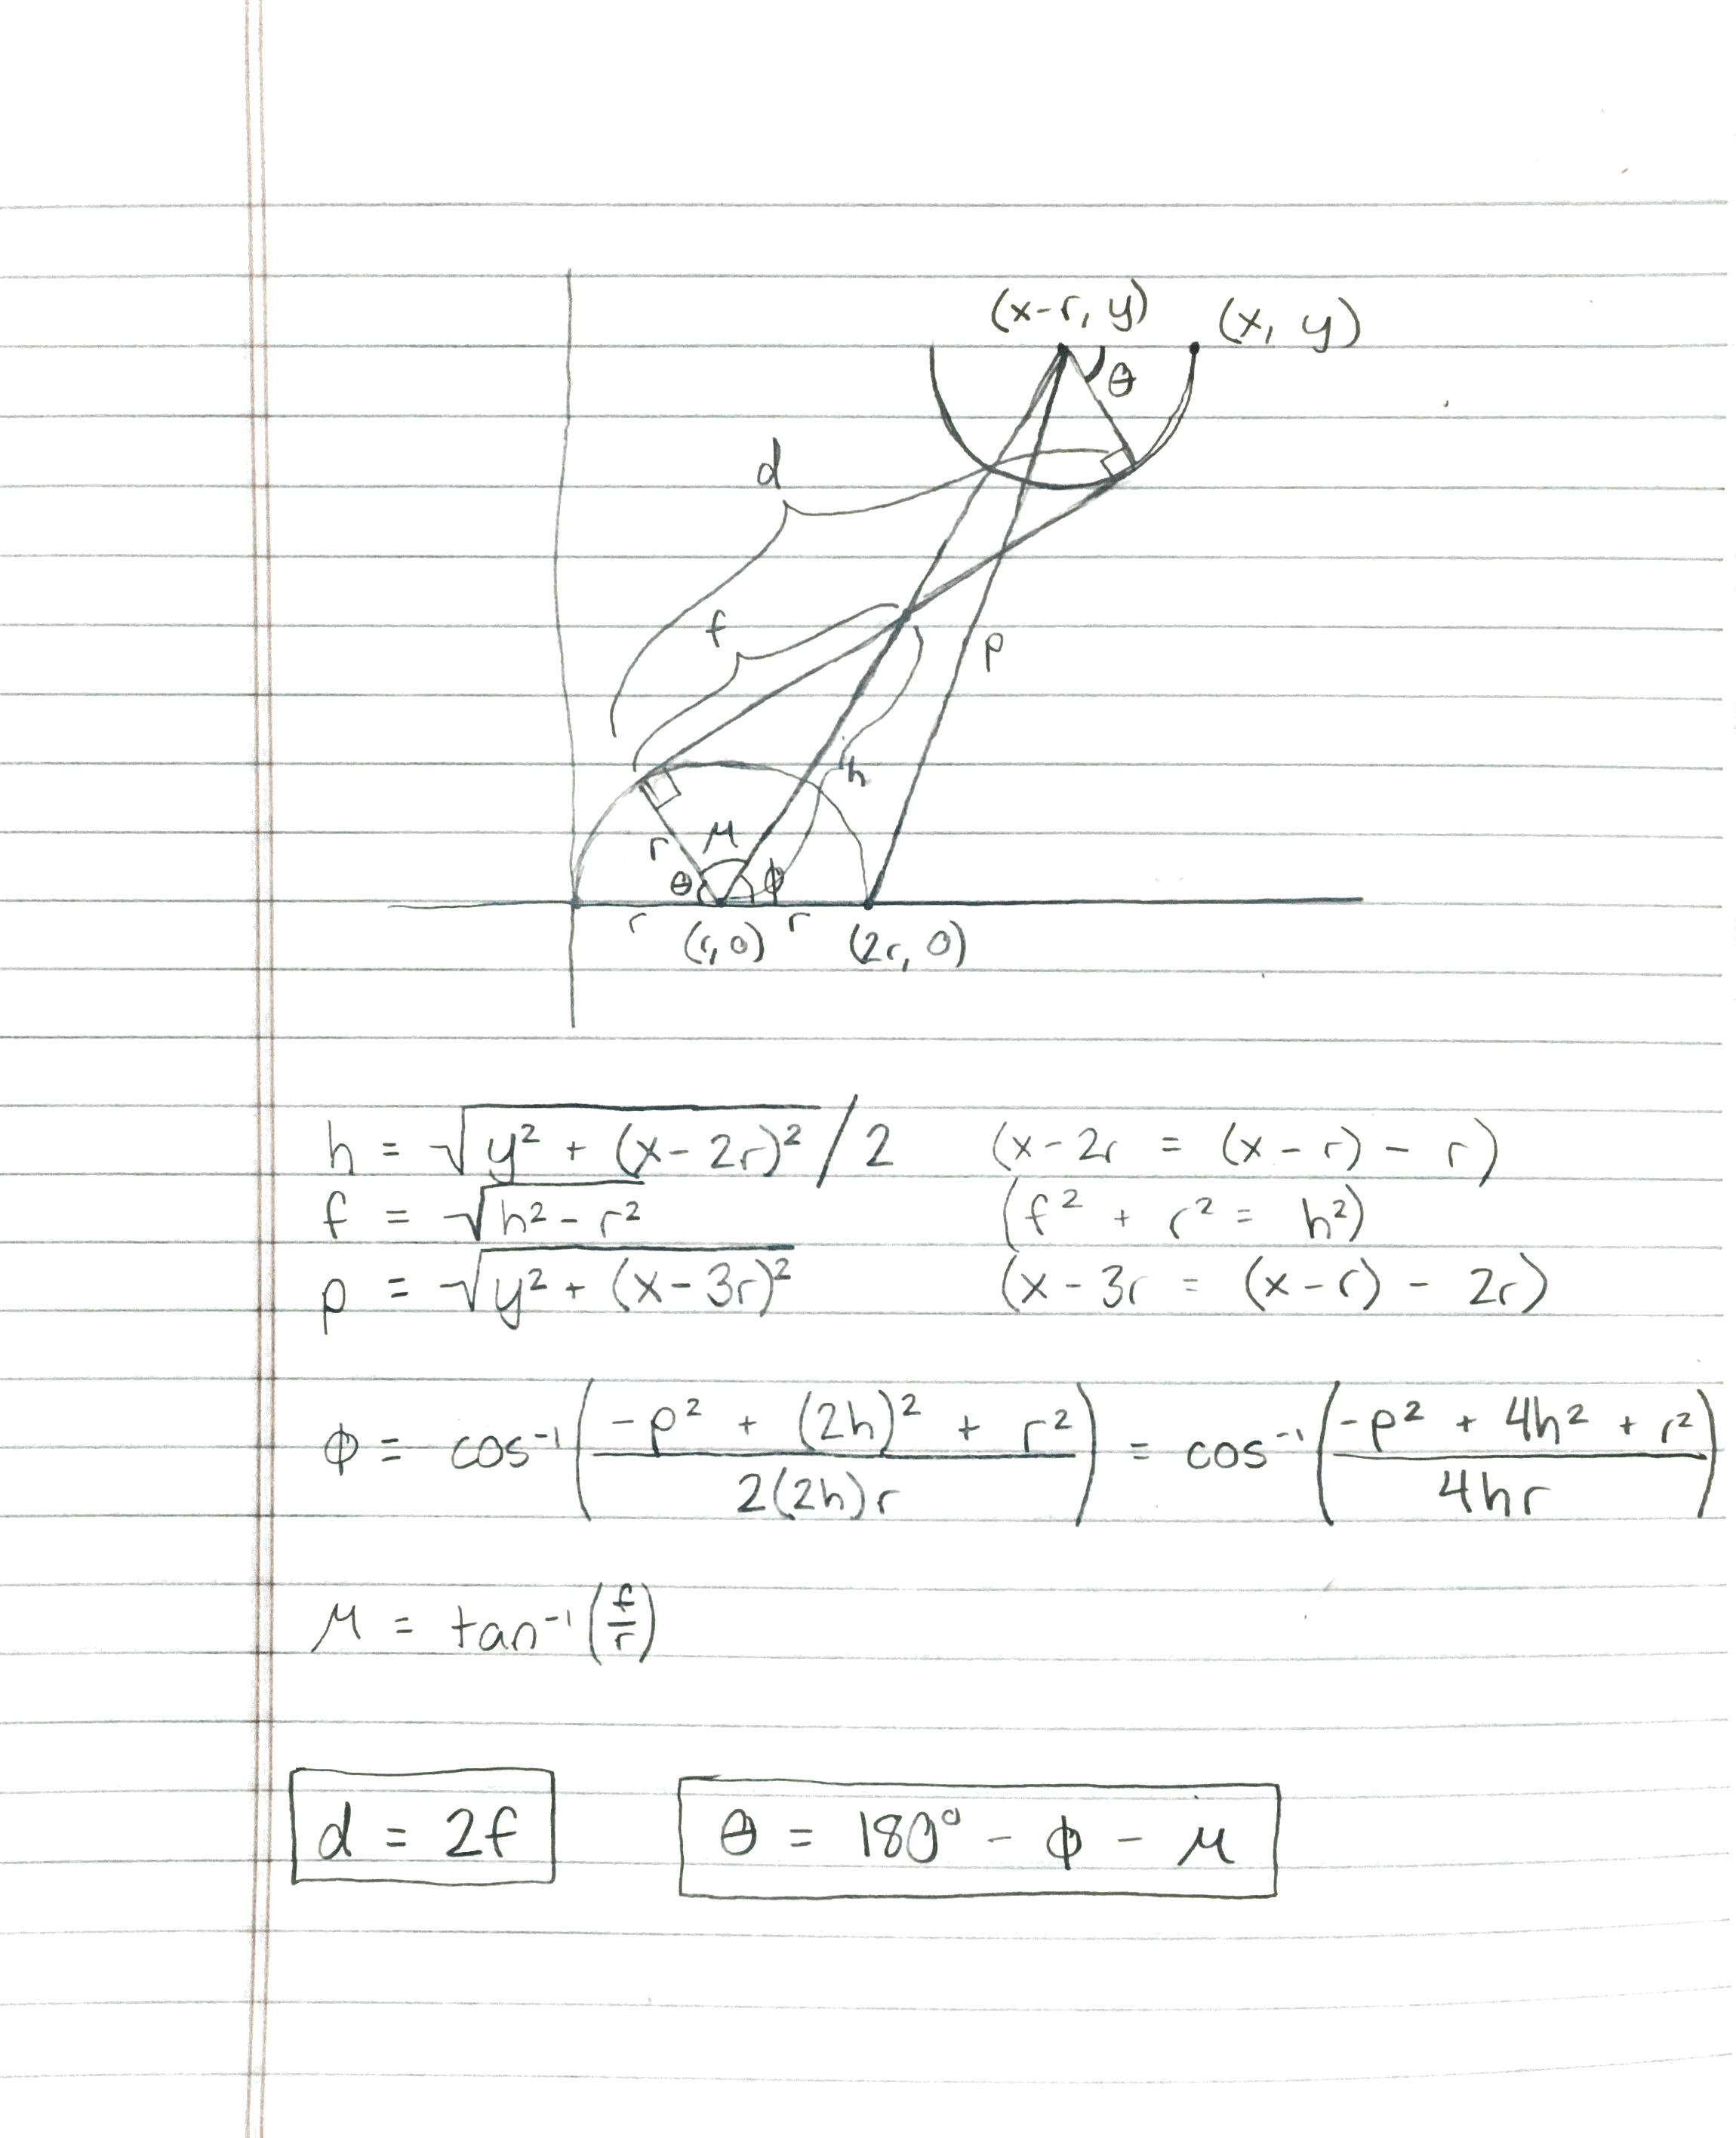 (x-r, y) (x, y)
θ
d
f
p
h
μ
r
θ ϕ
r (r, 0) r (2r, 0)
h = √(y² + (x-2r)²) / 2 (x-2r = (x-r) - r)
f = √(h² - r²) (f² + r² = h²)
p = √(y² + (x-3r)²) (x-3r = (x-r) - 2r)
ϕ = cos⁻¹((-p² + (2h)² + r²)/(2(2h)r)) = cos⁻¹((-p² + 4h² + r²)/(4hr))
μ = tan⁻¹(f/r)
d = 2f θ = 180° - ϕ - μ